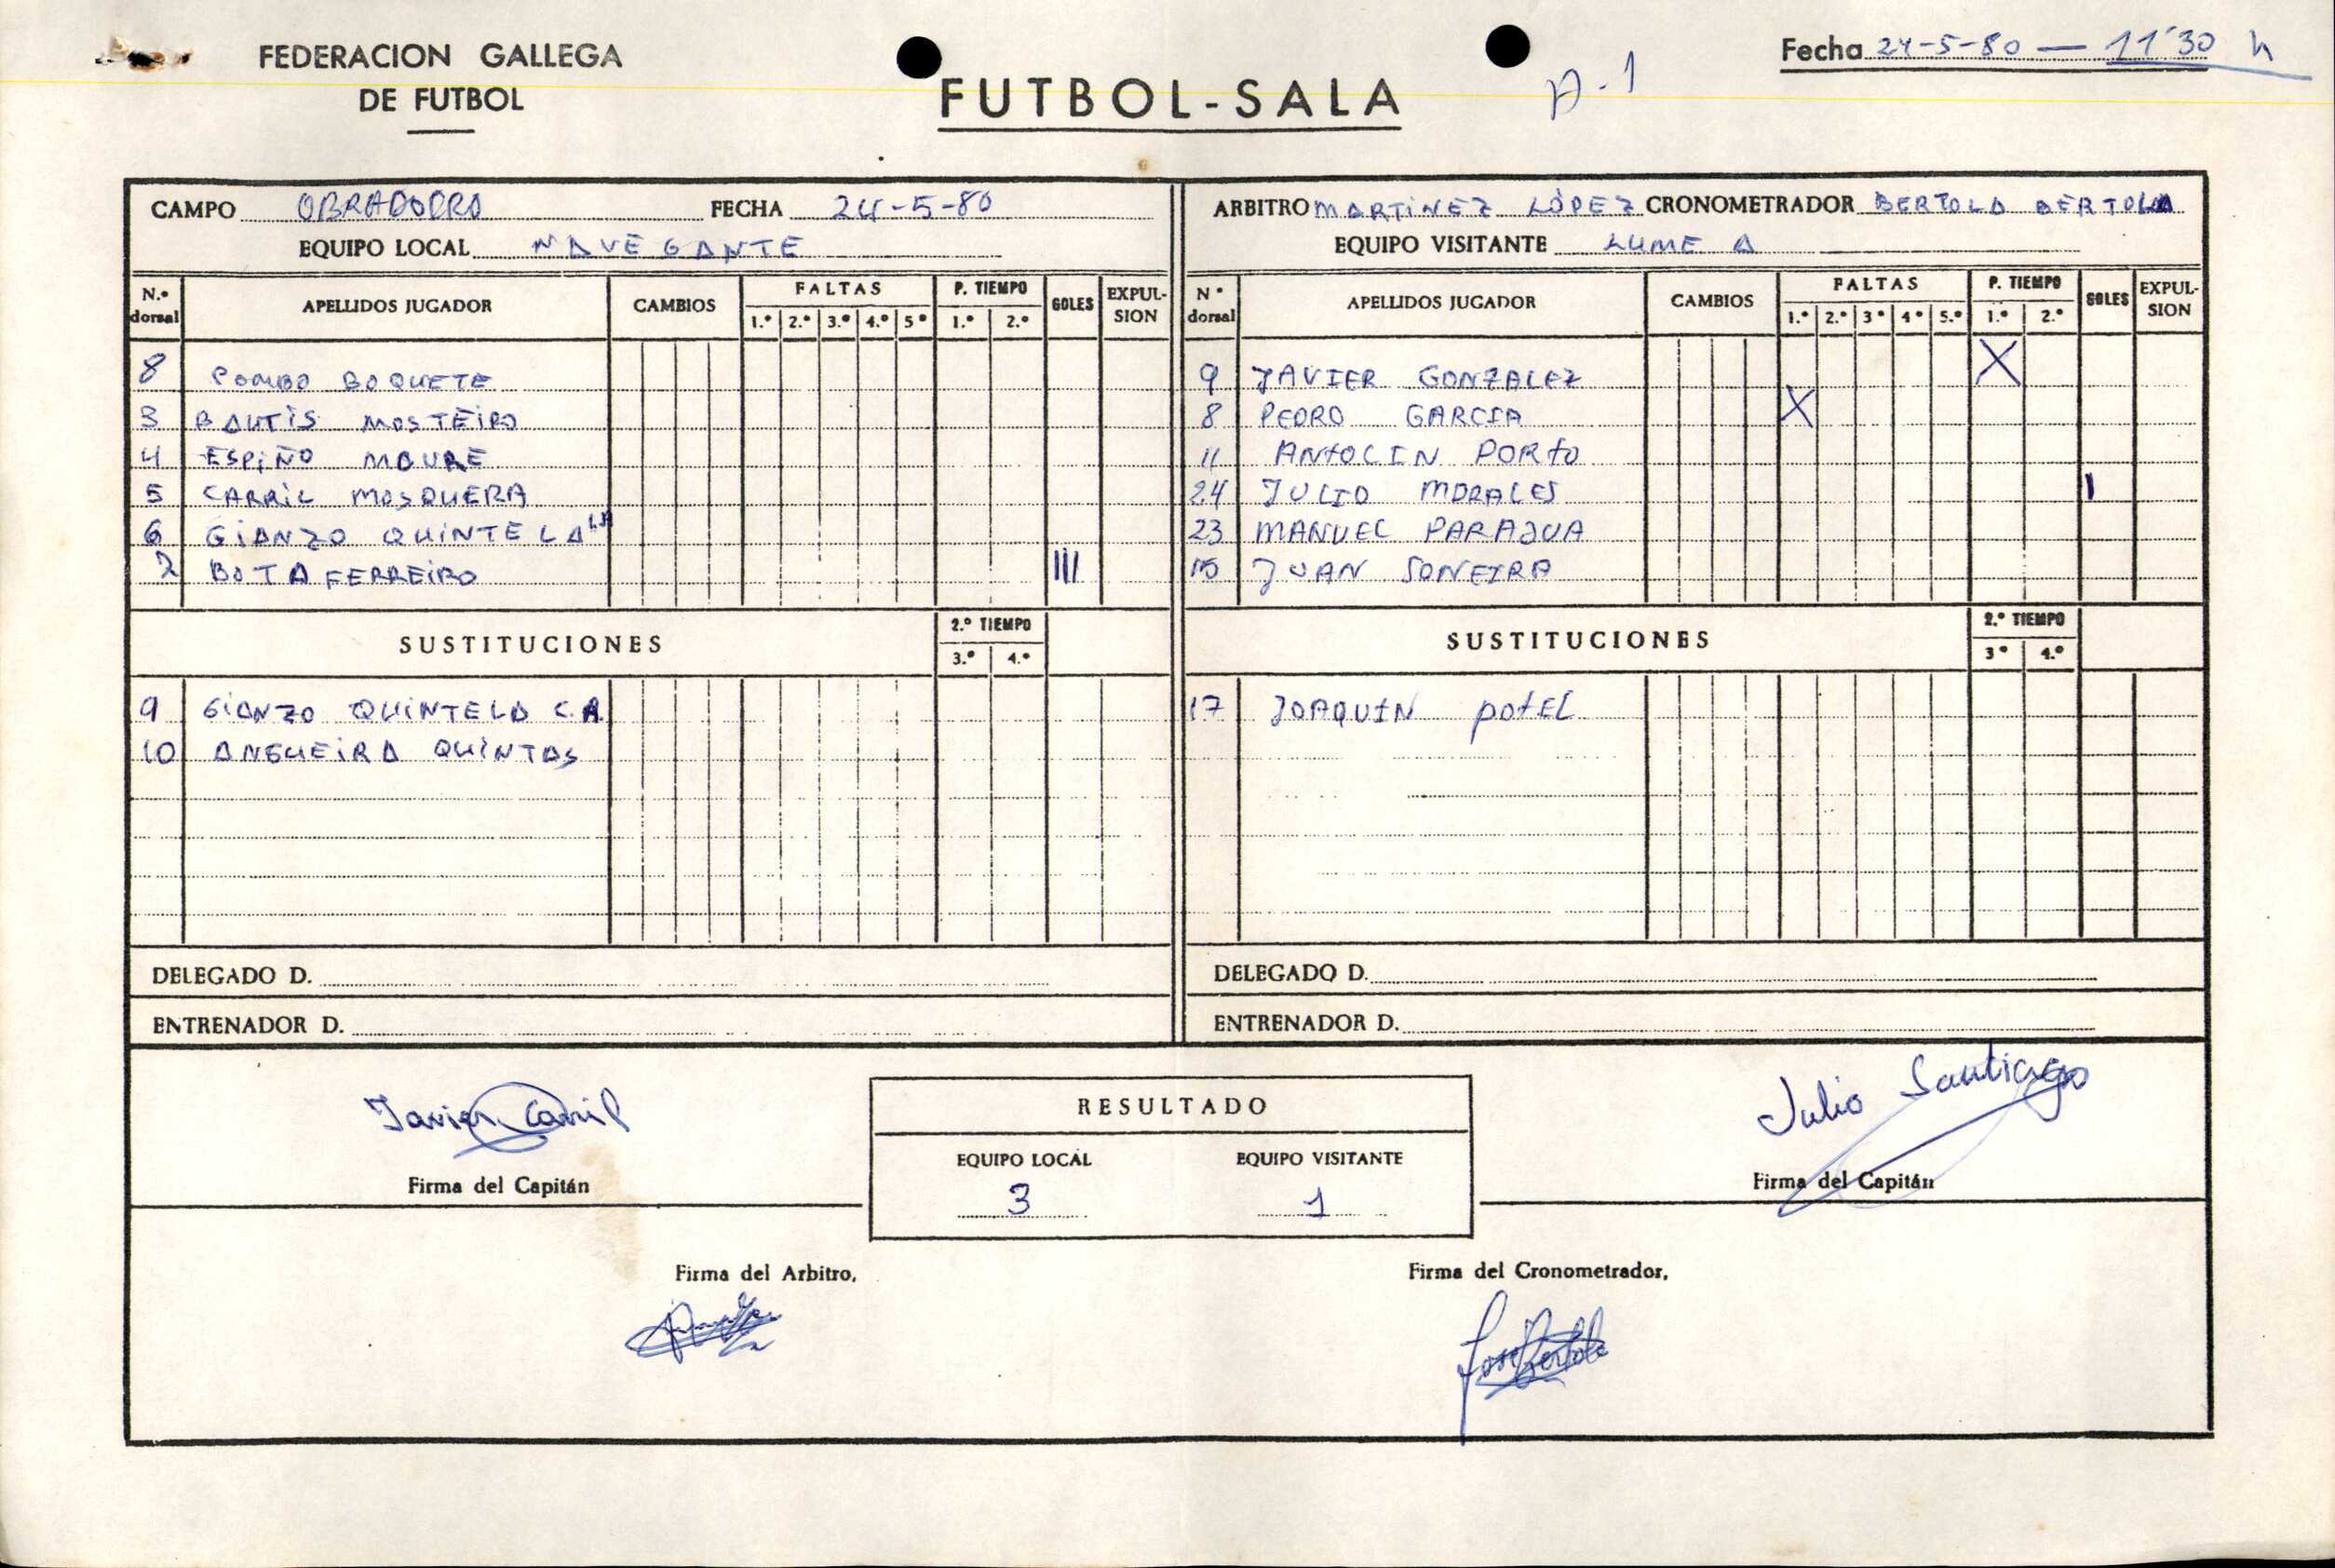 FEDERACION GALLEGA
DE FUTBOL
FUTBOL-SALA
A-1
Fecha 24-5-80 — 11'30 h
CAMPO OBRADOIRO FECHA 24-5-80
EQUIPO LOCAL NAVEGANTE
ARBITRO MARTINEZ LÓPEZ CRONOMETRADOR BERTOLA BERTOLA
EQUIPO VISITANTE LUME A
N.º dorsal APELLIDOS JUGADOR CAMBIOS FALTAS 1.º 2.º 3.º 4.º 5º P. TIEMPO 1.º 2.º GOLES EXPULSION
8 POMBO BOQUETE
3 BAUTIS MOSTEIRO
4 ESPIÑO MOURE
5 CARRIL MOSQUERA
6 GIANZO QUINTELA
2 BOTA FERREIRO III
SUSTITUCIONES 2.º TIEMPO 3.º 4.º
9 GIANZO QUINTELA C.A.
10 ANGUEIRA QUINTAS
DELEGADO D.
ENTRENADOR D.
Nº dorsal APELLIDOS JUGADOR CAMBIOS FALTAS 1.º 2.º 3º 4º 5.º P. TIEMPO 1.º 2.º GOLES EXPULSION
9 JAVIER GONZALEZ X
8 PEDRO GARCIA X
11 ANTOLIN PORTO
24 JULIO MORALES I
23 MANUEL PARAJUA
15 JUAN SONEIRA
SUSTITUCIONES 2.º TIEMPO 3º 4.º
17 JOAQUIN POTEL
DELEGADO D.
ENTRENADOR D.
Javier Carril
Firma del Capitán
RESULTADO
EQUIPO LOCAL EQUIPO VISITANTE
3 1
Julio Santiago
Firma del Capitán
Firma del Arbitro,
Firma del Cronometrador,
José Bertola